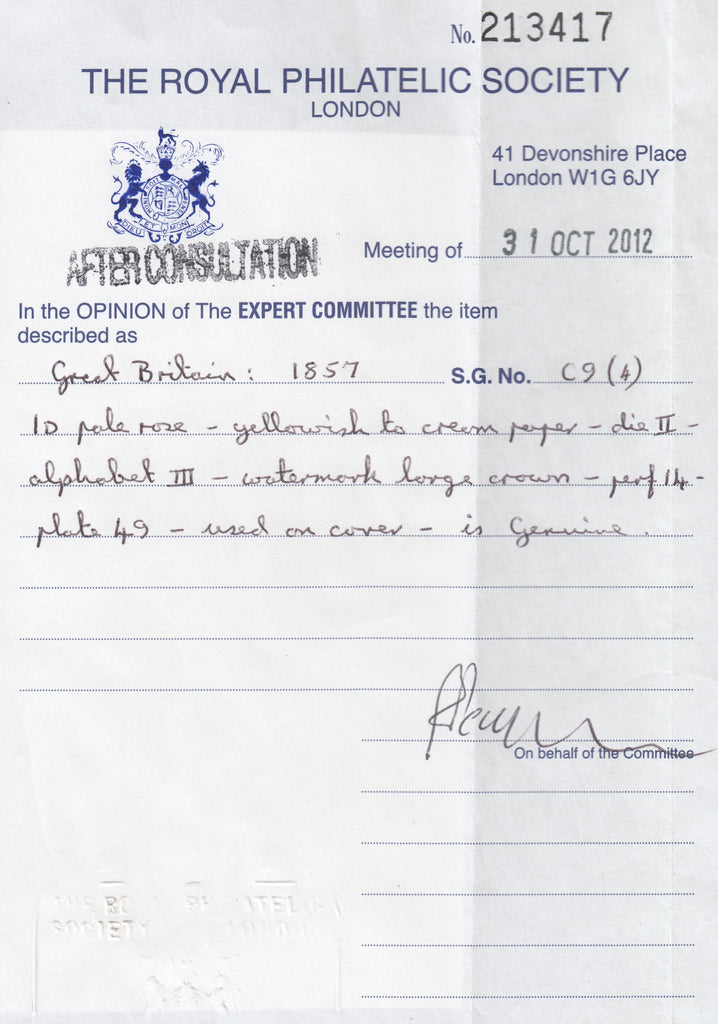 No. 213417
THE ROYAL PHILATELIC SOCIETY
LONDON
41 Devonshire Place
London W1G 6JY
AFTER CONSULTATION
Meeting of 31 OCT 2012
In the OPINION of The EXPERT COMMITTEE the item
described as
Great Britain: 1857 S.G. No. C9 (4)
1D pale rose - yellowish to cream paper - die II -
alphabet III - watermark large crown - perf 14 -
plate 49 - used on cover - is Genuine.
On behalf of the Committee
SOCIETY LONDON